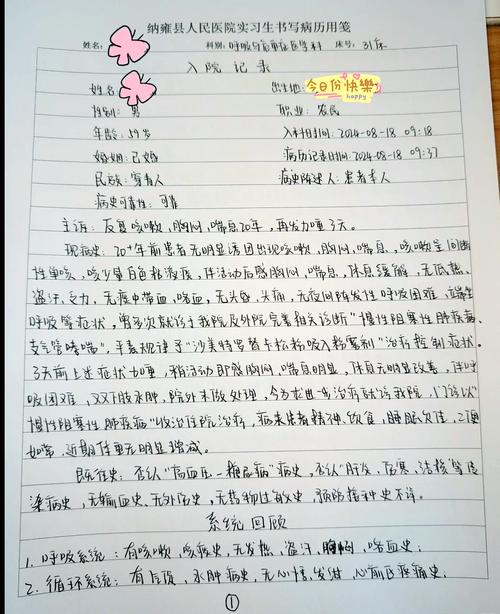 纳雍县人民医院实习生书写病历用笺
姓名: 科别:呼吸与危重症医学科 床号:31床
入院记录
姓名: 出生地: 今日份快樂 happy
性别: 男 职业: 农民
年龄: 59岁 入科时间: 2024-08-18 09:18
婚姻: 已婚 病历记录时间: 2024-08-18 09:37
民族: 穿青人 病史陈述人: 患者本人
病史可靠性: 可靠
主诉: 反复咳嗽,胸闷,喘息20年,再发加重3天。
现病史: 20+年前患者无明显诱因出现咳嗽,胸闷,喘息,咳嗽呈间断
性单咳,咳少量白色粘液痰,伴活动后感胸闷,喘息,休息缓解,无低热,
盗汗,乏力,无痰中带血,咯血,无头昏,头痛,无夜间阵发性呼吸困难,端坐
呼吸等症状,曾多次就诊于我院及外院完善相关诊断"慢性阻塞性肺疾病,
支气管哮喘",平素规律予"沙美特罗替卡松粉吸入粉雾剂"治疗控制症状。
3天前上述症状加重,稍活动即感胸闷,喘息明显,休息无明显改善,伴呼
吸困难,双下肢水肿,院外未做处理,今为求进一步治疗就诊我院,门诊以"
慢性阻塞性肺疾病"收治住院治疗,病来患者精神、饮食,睡眠欠佳,二便
如常,近期体重无明显增减。
既往史: 否认"高血压、糖尿病"病史,否认"肝炎,伤寒,结核"等传
染病史,无输血史、无外伤史,无药物过敏史,预防接种史不详。
系统回顾
1. 呼吸系统: 有咳嗽,咳痰史,无发热,盗汗,胸闷,咯血史;
2. 循环系统: 有气促,水肿病史,无心悸,发绀,心前区疼痛史;
①